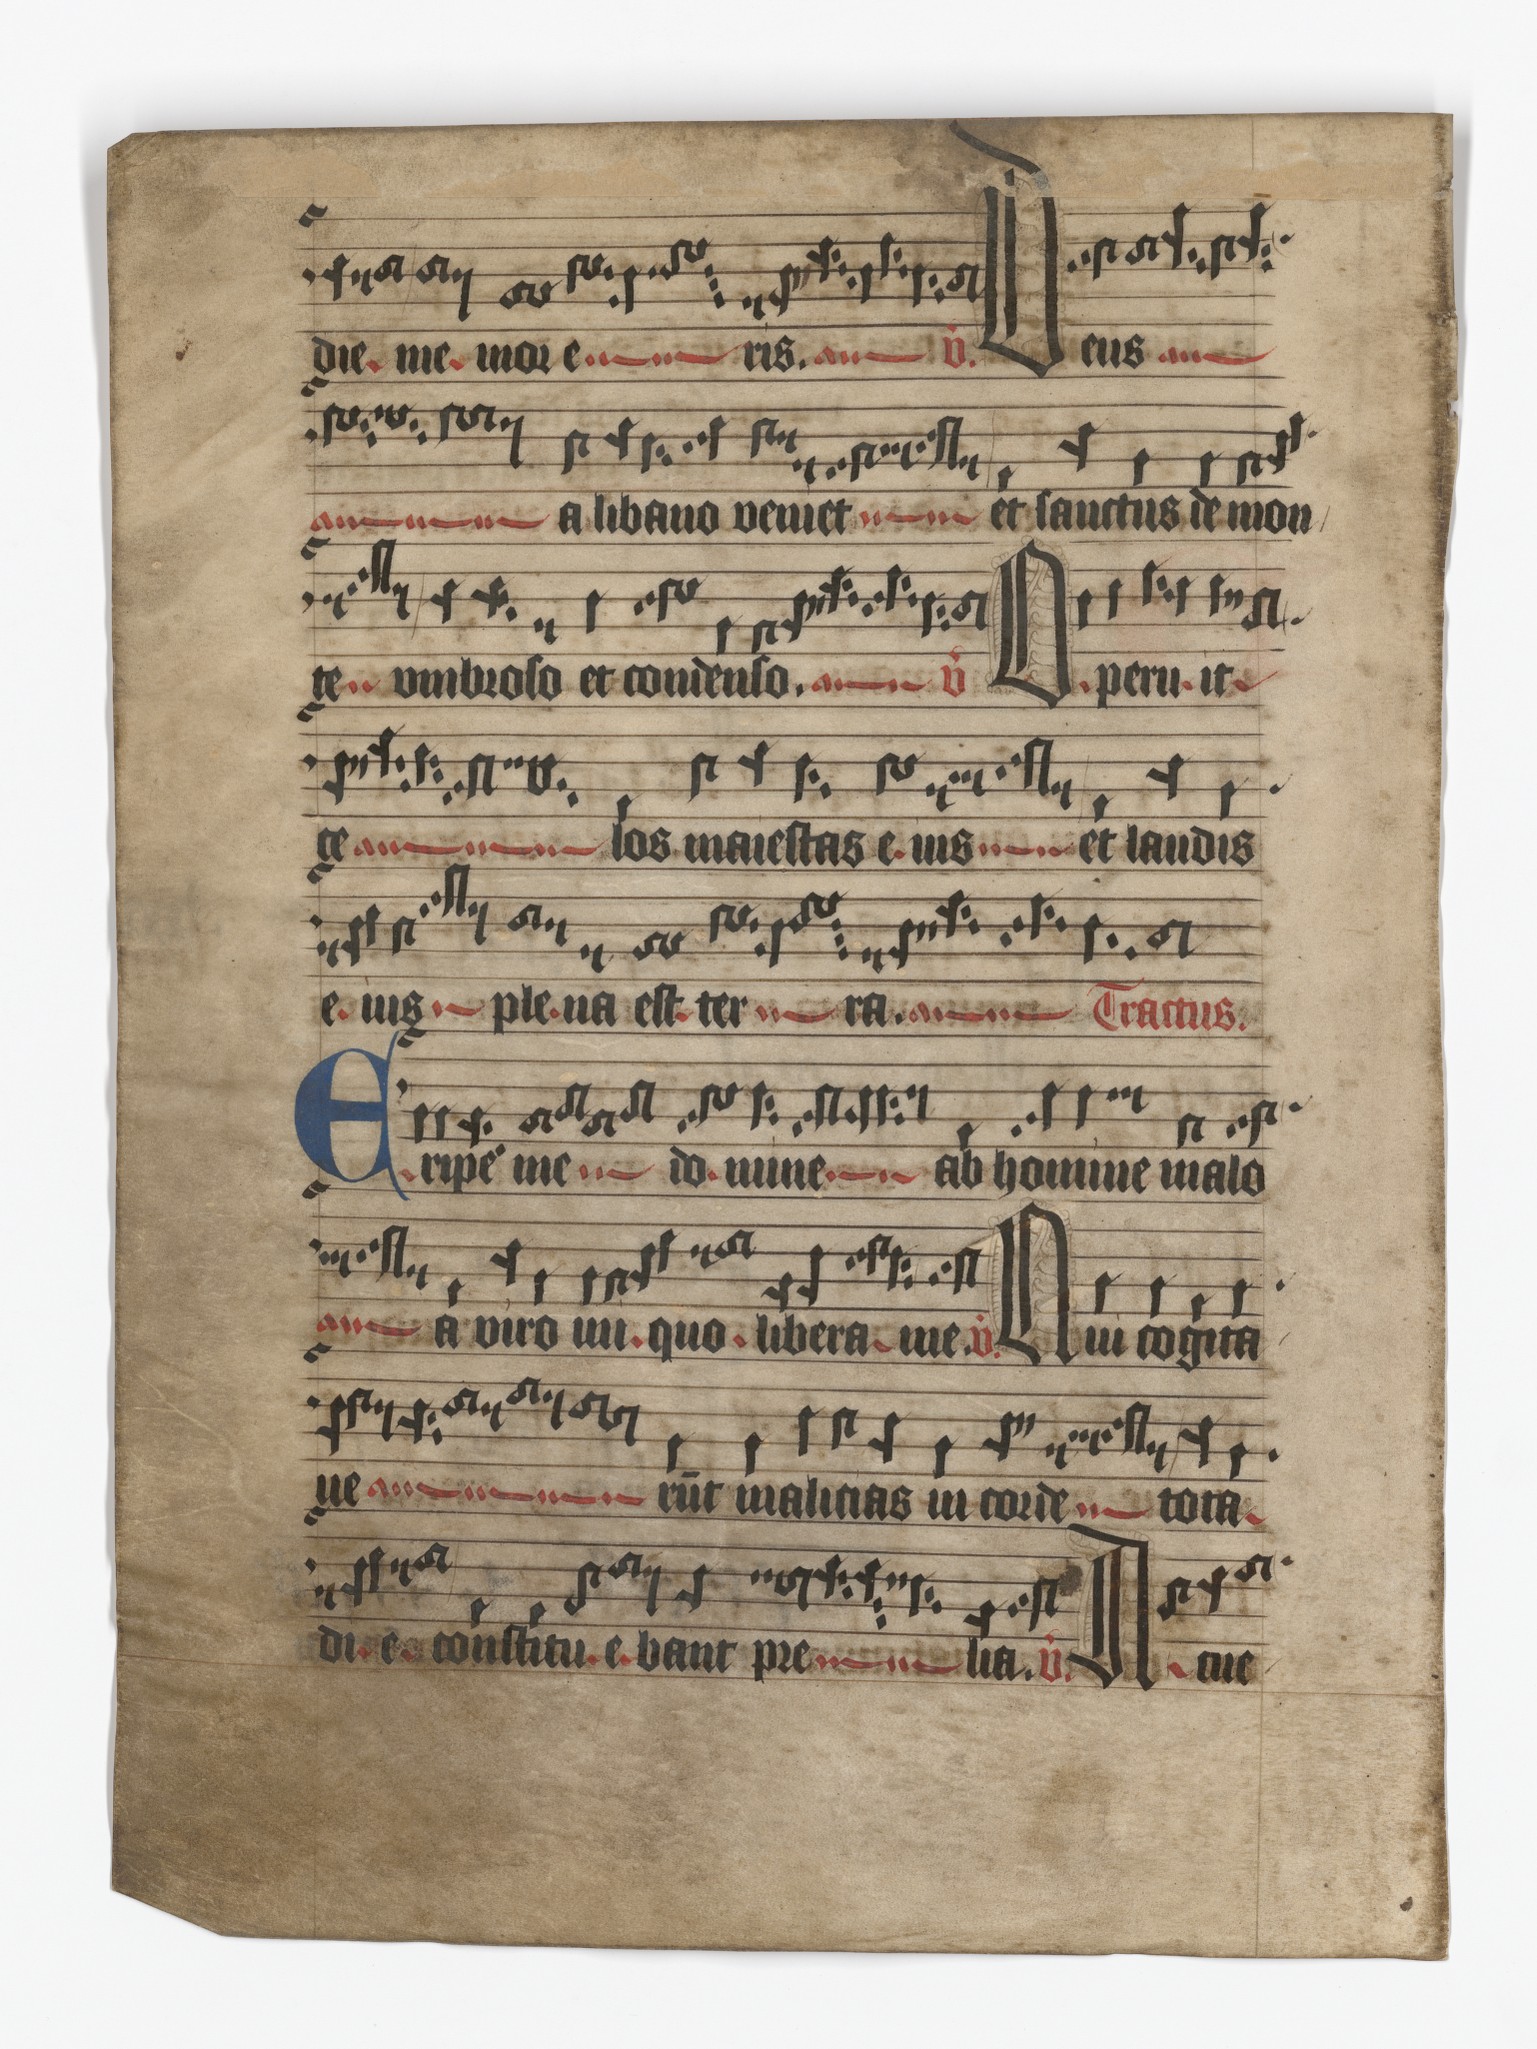 die. me. mor e ris. v̄. Deus
a libano veniet et sanctus de mon
te vmbroso et condenso. v̄ O. peru. it
ce los maiestas e. ius et laudis
e. ius ple. na est. ter ra. Tractus.
E. ripe me do. mine ab homine malo
a viro ini. quo. libera me. v̄. Qui cogita
ue rūt malicias in corde tota
di. e. constitu. e. bant pre lia. v̄. A cue